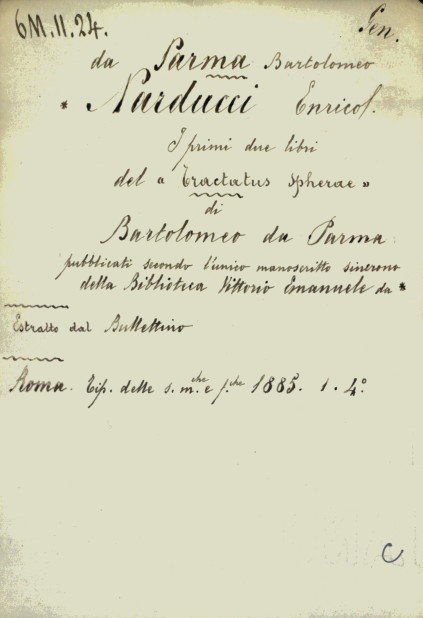 6M.11.24.
Gen.
da Parma Bartolomeo
* Narducci Enrico/.
I primi due libri
del « Tractatus Spherae »
di
Bartolomeo da Parma
pubblicati secondo l'unico manoscritto sincrono
della Biblioteca Vittorio Emanuele da *
Estratto dal Bullettino
Roma. Tip. delle s. m.che e f.che 1885. 1. 4.°
C